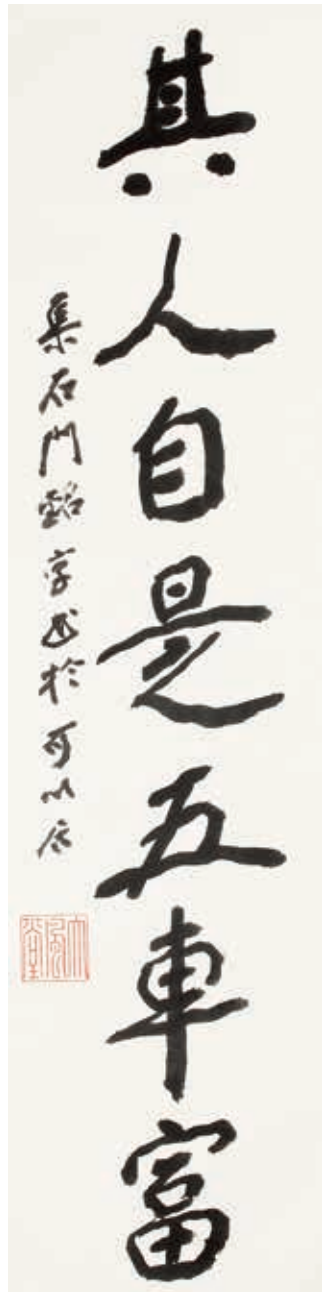 其人自是五車富
集石門銘字書於可以居
大風堂